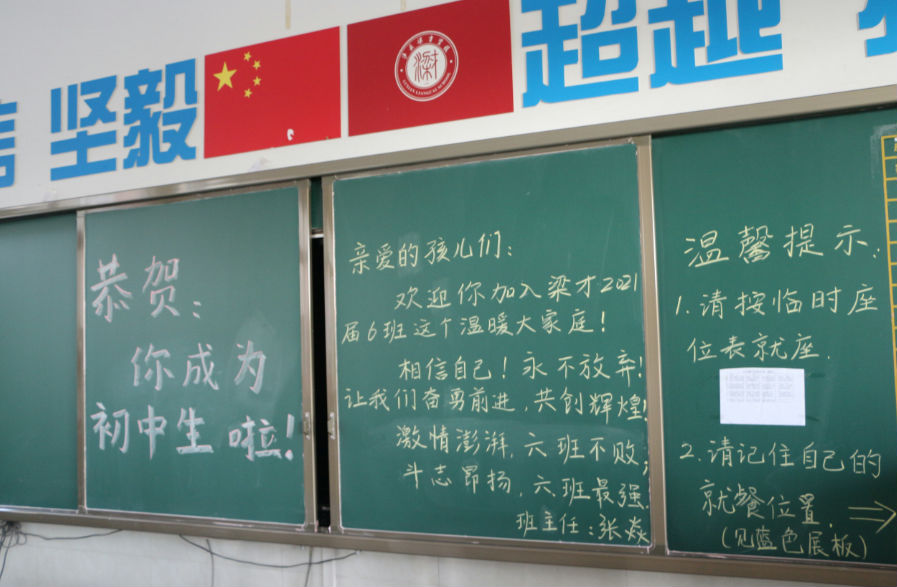 坚毅
梁才
超越
恭贺：
你成为
初中生啦！
亲爱的孩儿们：
欢迎你加入梁才2021
届6班这个温暖大家庭！
相信自己！永不放弃！
让我们奋勇前进，共创辉煌！
激情澎湃，六班不败；
斗志昂扬，六班最强.
班主任：张焱
温馨提示.
1.请按临时座
位表就座.
2.请记住自己的
就餐位置.
(见蓝色展板)